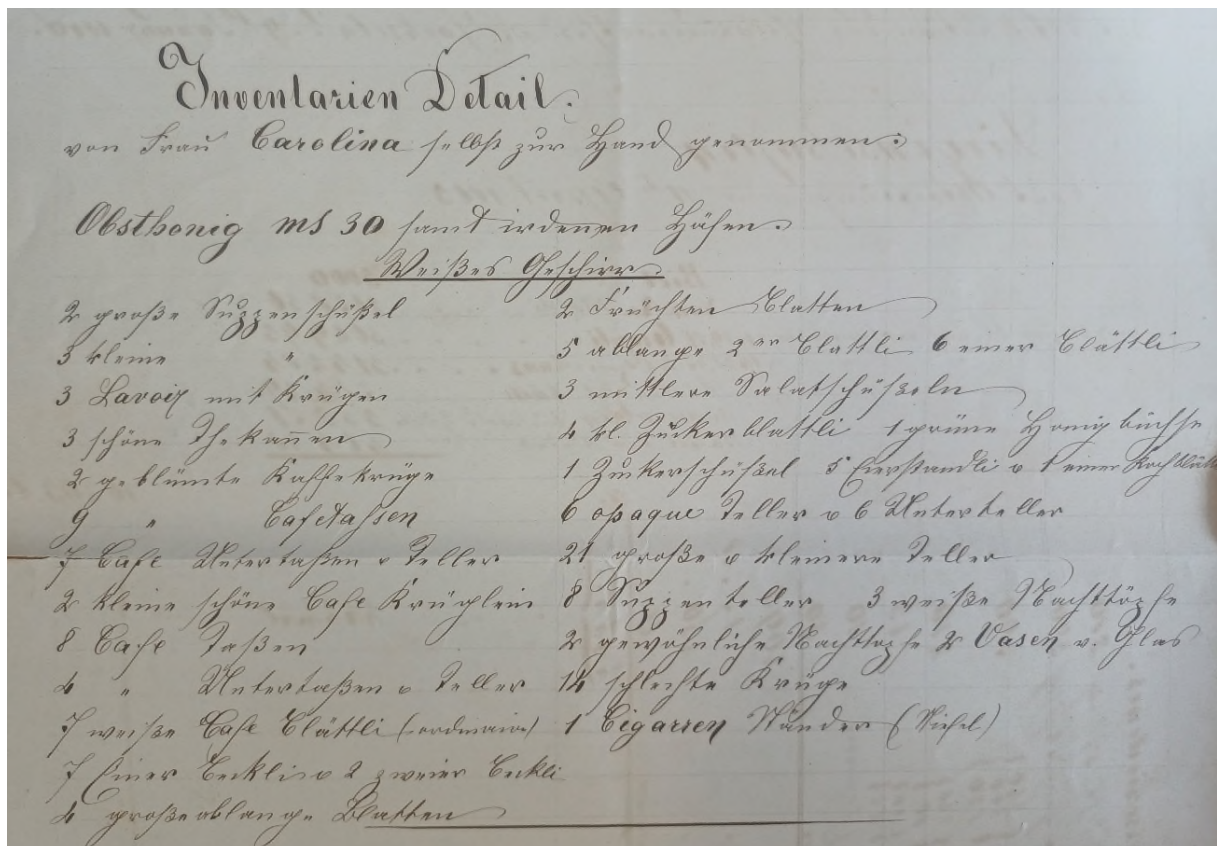 Inventarien Detail.
von Frau Carolina selbst zur Hand genommen:
Obsthonig ms 30 samt irdenen Häfen.
Weißes Geschirr.
2 große Suppenschüßel
3 kleine "
3 Lavoir mit Krügen
3 schöne Thekannen
2 geblümte Kaffekrüge
9 " Cafetassen
7 Cafe Untertaßen o Teller
2 kleine schöne Cafe Krüglein
8 Cafe Taßen
4 " Untertaßen o Teller
7 weiße Cafe Blättli (ordinaire)
7 Einer Beckli o 2 zweier Beckli
4 große ablange Blatten
2 Früchten Blatten
5 ablange 2er Blattli 6 einer Blättli
3 mittlere Salatschüßeln
4 kl. Zuckerblattli 1 grüne Honigbüchse
1 Zukerschüßel 5 Eierstandli o 1 einer
6 opaque Teller o 6 Unterteller
21 große o kleinere Teller
8 Suppenteller 3 weiße Nachttöpfe
2 gewöhnliche Nachttopfe 2 Vasen v. Glas
14 schlechte Krüge
1 Cigarren Ständer (Nickel)